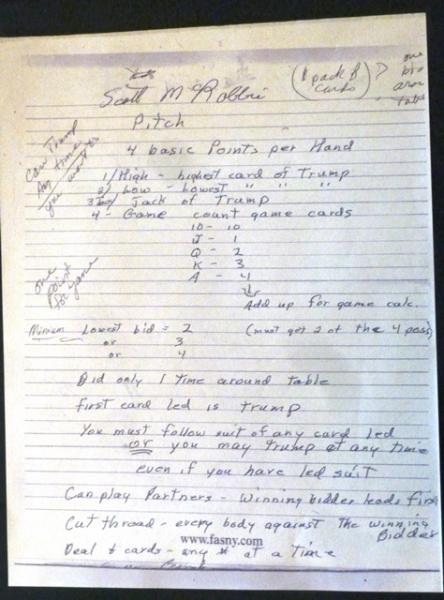 Scott M Robbie
(1 pack of cards)?
one
bid
around
table
Pitch
Can Trump
Any time
you want to
4 basic Points per Hand
1/ High - highest card of Trump
2/ Low - Lowest " " "
3 Jack of Trump
4 - Game count game cards
10 - 10
J - 1
Q - 2
K - 3
A - 4
one
point
for game
Add up for game calc.
Minium Lowest bid = 2 (must get 2 of the 4 poss)
or 3
or 4
Bid only 1 time around table
first card led is trump
You must follow suit of any card Led
or you may trump at any time
even if you have led suit
Can play Partners - Winning bidder leads first
Cut throad - every body against the winning
Bidder
www.fasny.com
Deal 6 cards - any # at a time